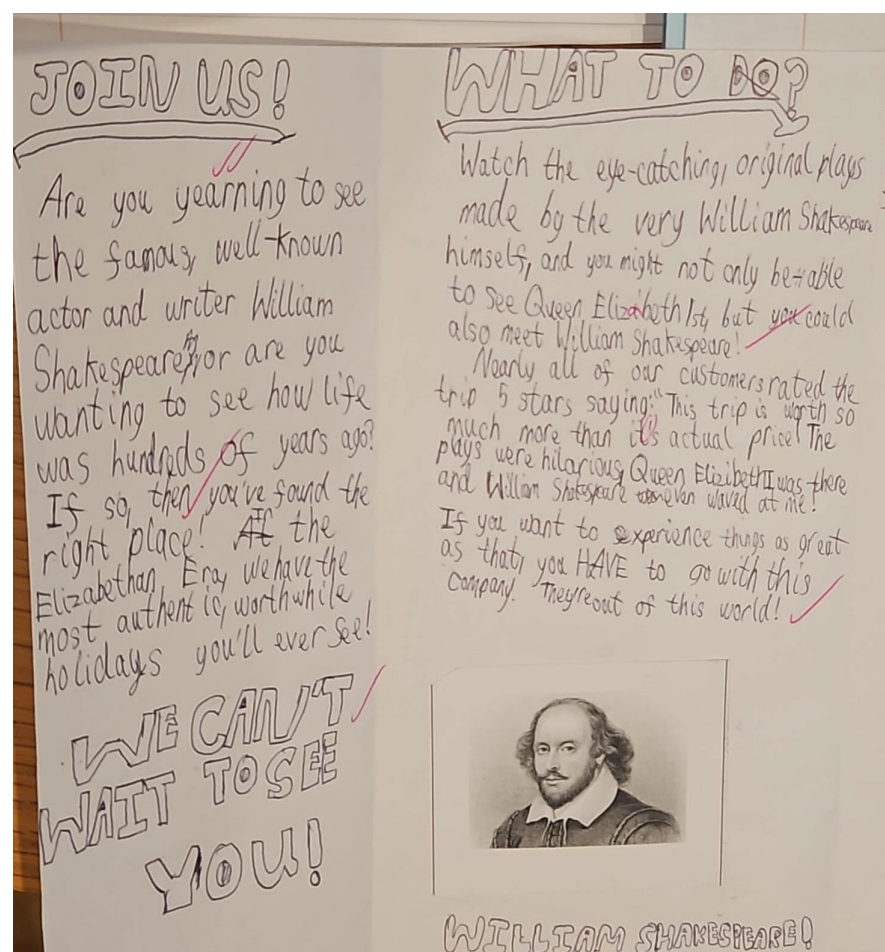 JOIN US!
Are you yearning to see
the famous, well-known
actor and writer William
Shakespeare, or are you
wanting to see how life
was hundreds of years ago?
If so, then you've found the
right place! In the
Elizabethan Era, we have the
most authentic, worthwhile
holidays you'll ever see!
WE CAN'T
WAIT TO SEE
YOU!
WHAT TO DO?
Watch the eye-catching, original plays
made by the very William Shakespeare
himself, and you might not only be able
to see Queen Elizabeth 1st, but you could
also meet William Shakespeare!
Nearly all of our customers rated the
trip 5 stars saying: "This trip is worth so
much more than it's actual price! The
plays were hilarious, Queen Elizibeth I was there
and William Shakespeare even waved at me!
If you want to experience things as great
as that, you HAVE to go with this
company. They're out of this world!
WILLIAM SHAKESPEARE!